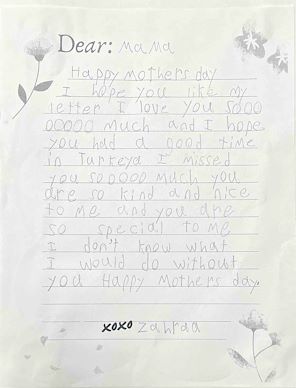 Dear: MaMa
Happy mothers day
I hope you like my
letter I love you sooo
ooooo much and I hope
you had a good time
in Turkeya I missed
you sooooo much you
are so kind and nice
to me and you are
so special to me
I don't know what
I would do without
you Happy Mothers day.
xoxo Zahraa